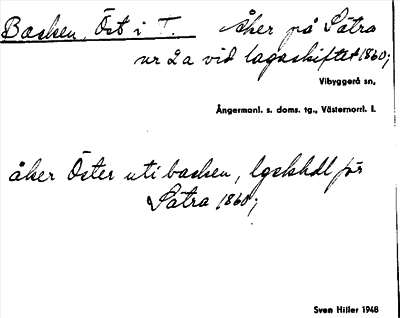 Backen, Öst i T. Åker på Sätra
nr 2a vid lagaskiftet 1860;
Vibyggerå sn,
Ångermanl. s. doms. tg., Västernorrl. l.
åker Öster uti backen, lgskhdl för
Sätra 1860;
Sven Hiller 1948